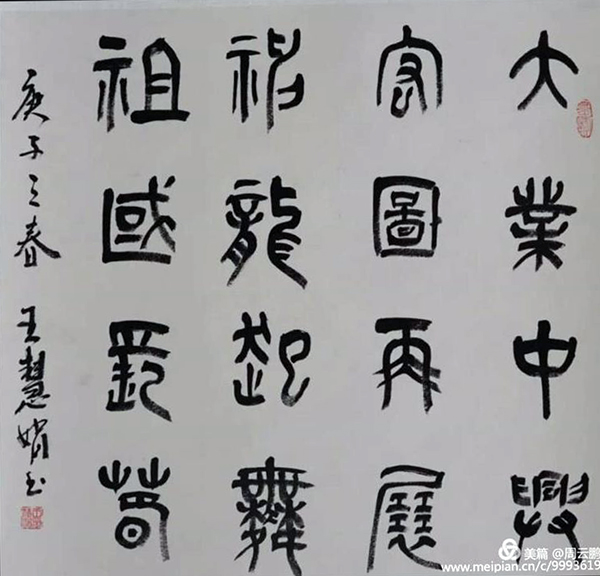 大業中興
宏圖再展
神龍起舞
祖國萅
庚子之春 王慧娟书
美篇 @周云鹏
www.meipian.cn/c/9993619